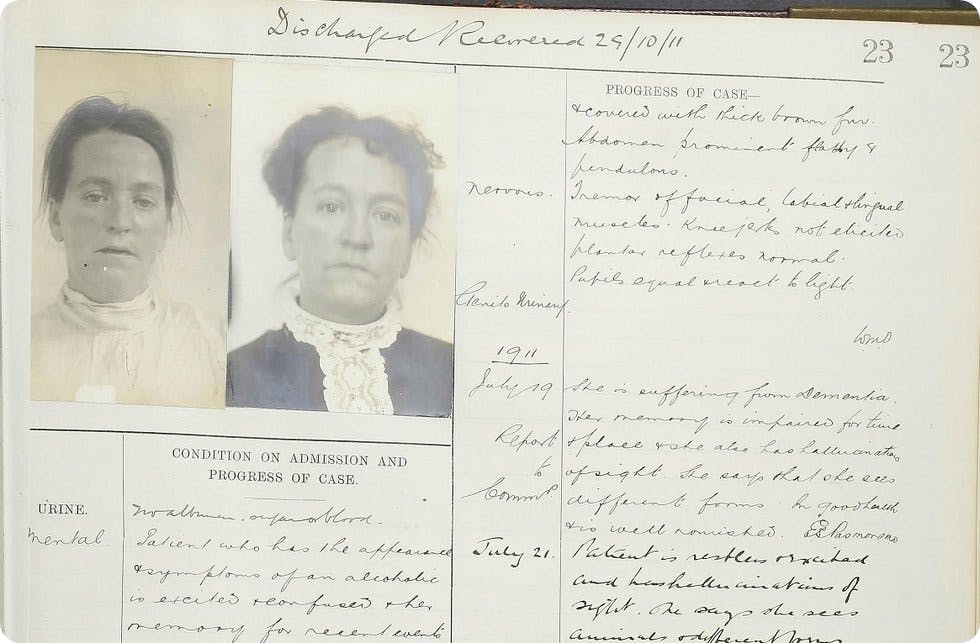 Discharged Recovered 29/10/11
23
23
PROGRESS OF CASE—
& covered with thick brown fur.
Abdomen prominent flabby &
pendulous.
Nervous.
Tremor of facial, labial & lingual
muscles. Knee jerks not elicited
plantar reflexes normal.
Pupils equal & react to light.
Genito Urinary.
1911
July 19
She is suffering from Dementia.
Her memory is impaired for time
Report
& place & she also has hallucinations
to
of sight. She says that she sees
Commrs.
different forms. In good health
& is well nourished.
July 21.
Patient is restless & excited
and has hallucinations of
sight. She says she sees
animals & different forms
CONDITION ON ADMISSION AND
PROGRESS OF CASE.
URINE.
No albumen, sugar or blood.
Mental.
Patient who has the appearance
& symptoms of an alcoholic
is excited & confused & her
memory for recent events